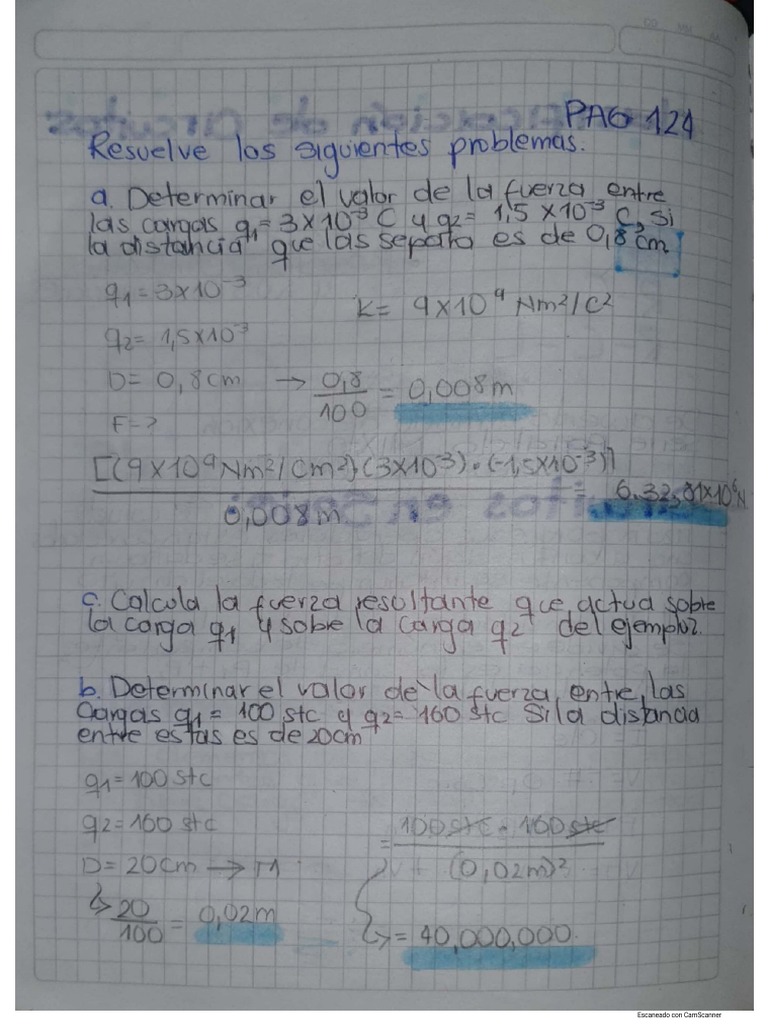 PAG 124
Resuelve los siguientes problemas.
a. Determinar el valor de la fuerza entre
las cargas q1= 3x10⁻³ C y q2= 1,5 x10⁻³ C, si
la distancia que las separa es de 0,8 cm
q1=3x10⁻³
K= 9x10⁹ Nm²/C²
q2= 1,5x10⁻³
D= 0,8cm → 0,8/100 = 0,008m
F=?
[(9x10⁹Nm²/Cm²)(3x10⁻³)·(-1,5x10⁻³)]
0,008m
= 6,32,81x10⁶N
c. Calcula la fuerza resultante que actua sobre
la carga q1 y sobre la carga q2 del ejemplo2.
b. Determinar el valor de la fuerza entre las
Cargas q1= 100 stc y q2= 160 stc Si la distancia
entre estas es de 20cm
q1=100 stc
q2=160 stc
= 100 stc · 160 stc
D= 20cm → M
(0,02m)²
20/100 = 0,02m
= 40,000,000
Escaneado con CamScanner